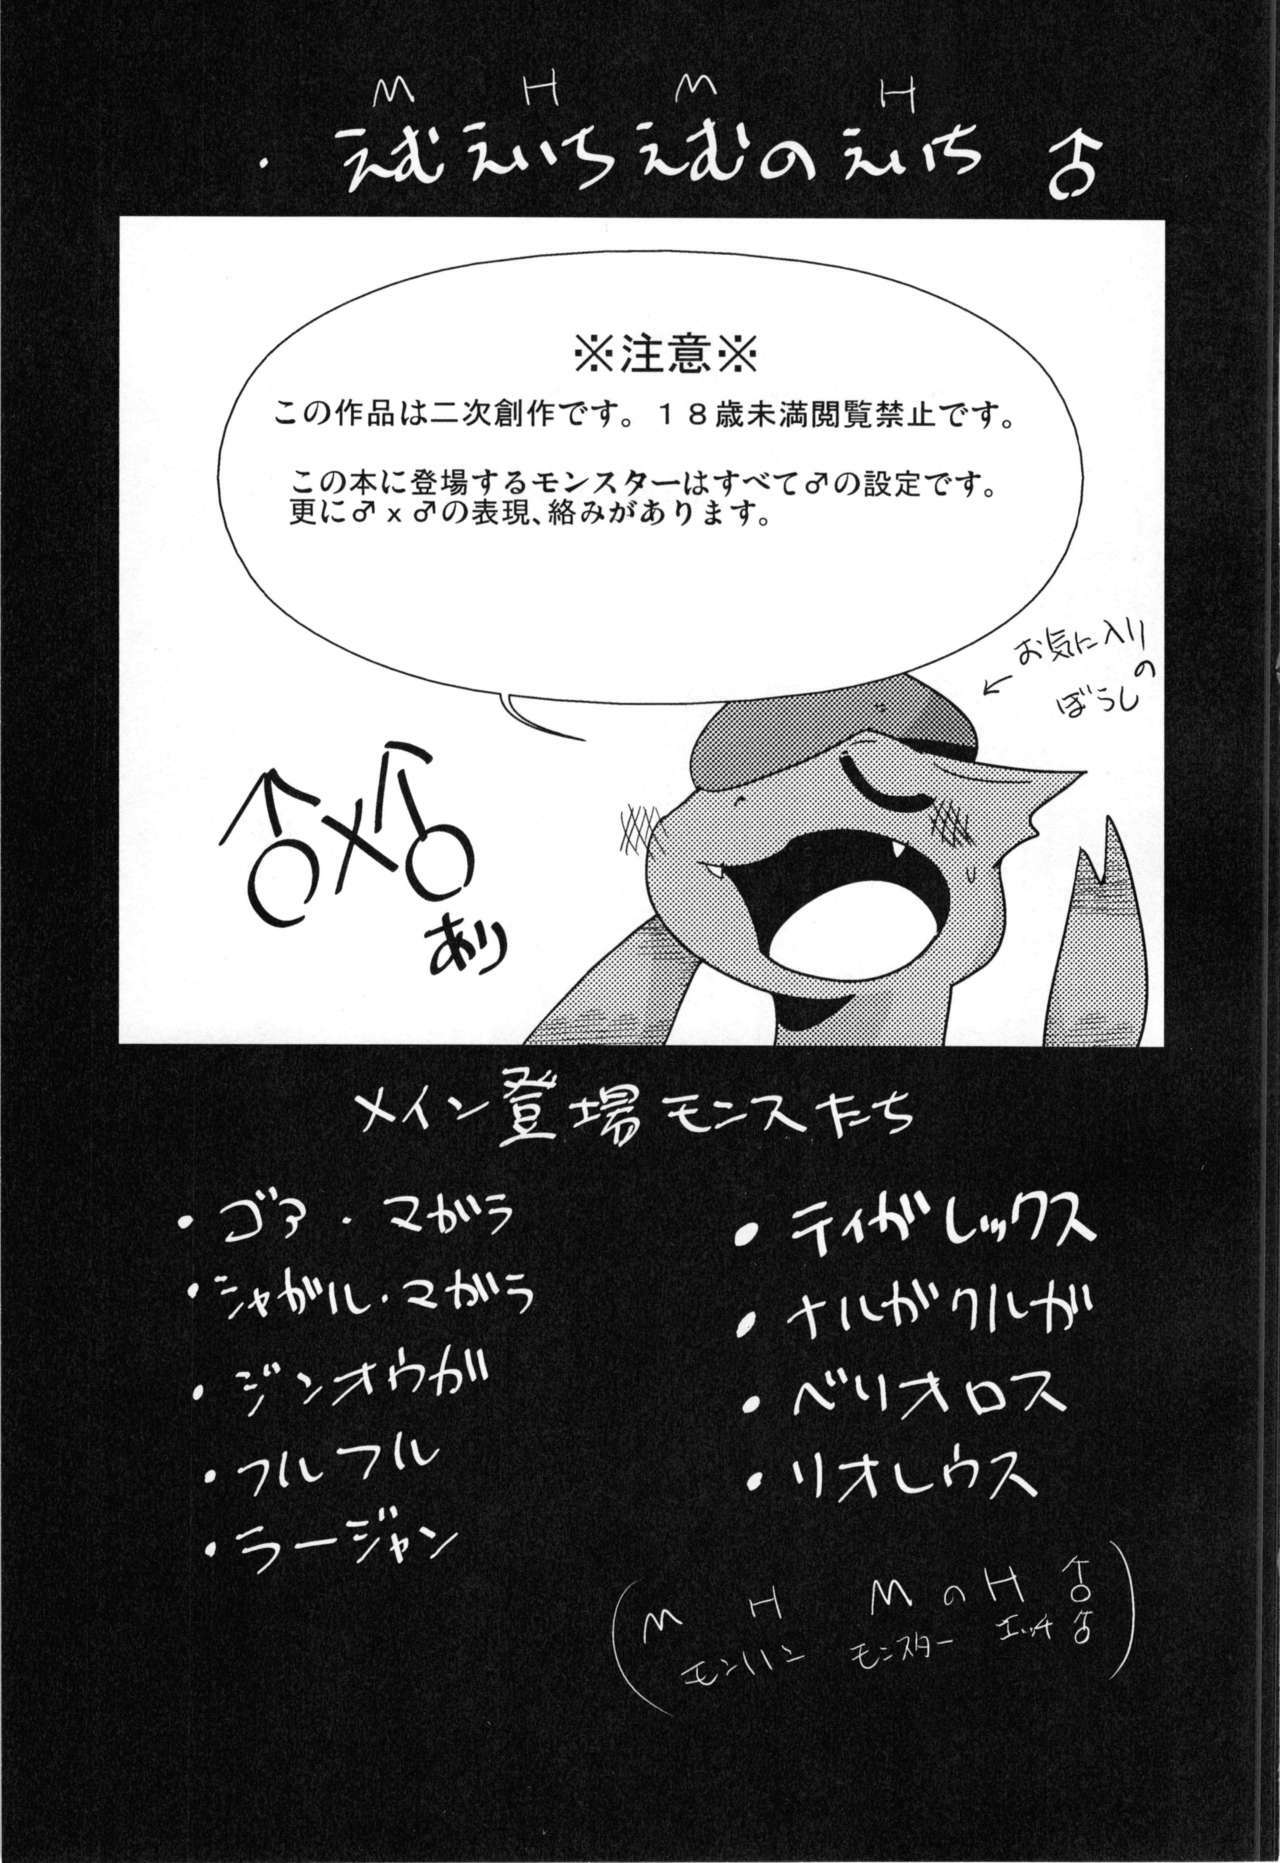 M H M H
・えむえいちえむのえいち♂
※注意※
この作品は二次創作です。18歳未満閲覧禁止です。
この本に登場するモンスターはすべて♂の設定です。
更に♂x♂の表現、絡みがあります。
←お気に入り
の
ぼうし
♂×♂
あり
メイン登場モンスたち
・ゴア・マガラ
・シャガル・マガラ
・ジンオウガ
・フルフル
・ラージャン
・ティガレックス
・ナルガクルガ
・ベリオロス
・リオレウス
(M H MのH♂
モンハン モンスター エッチ♂)